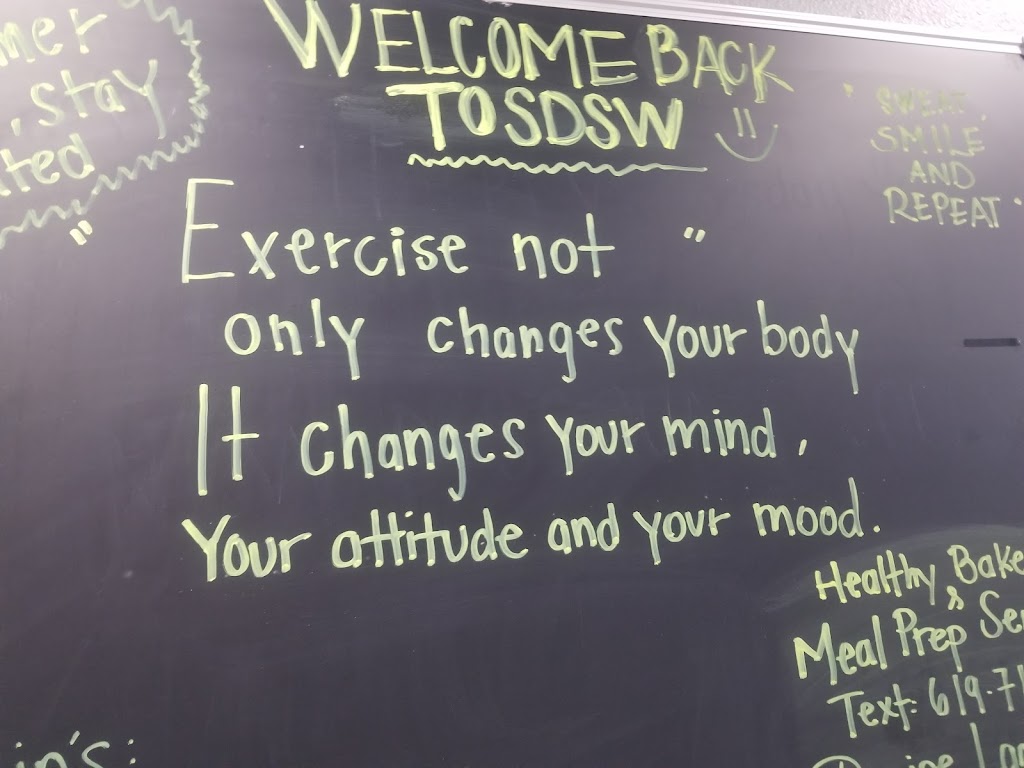 WELCOME BACK
TO SDSW
, stay
SWEAT,
SMILE
AND
REPEAT
"Exercise not "
only changes your body
It changes your mind,
Your attitude and your mood.
Healthy
&
Meal Prep
Text: 619-71